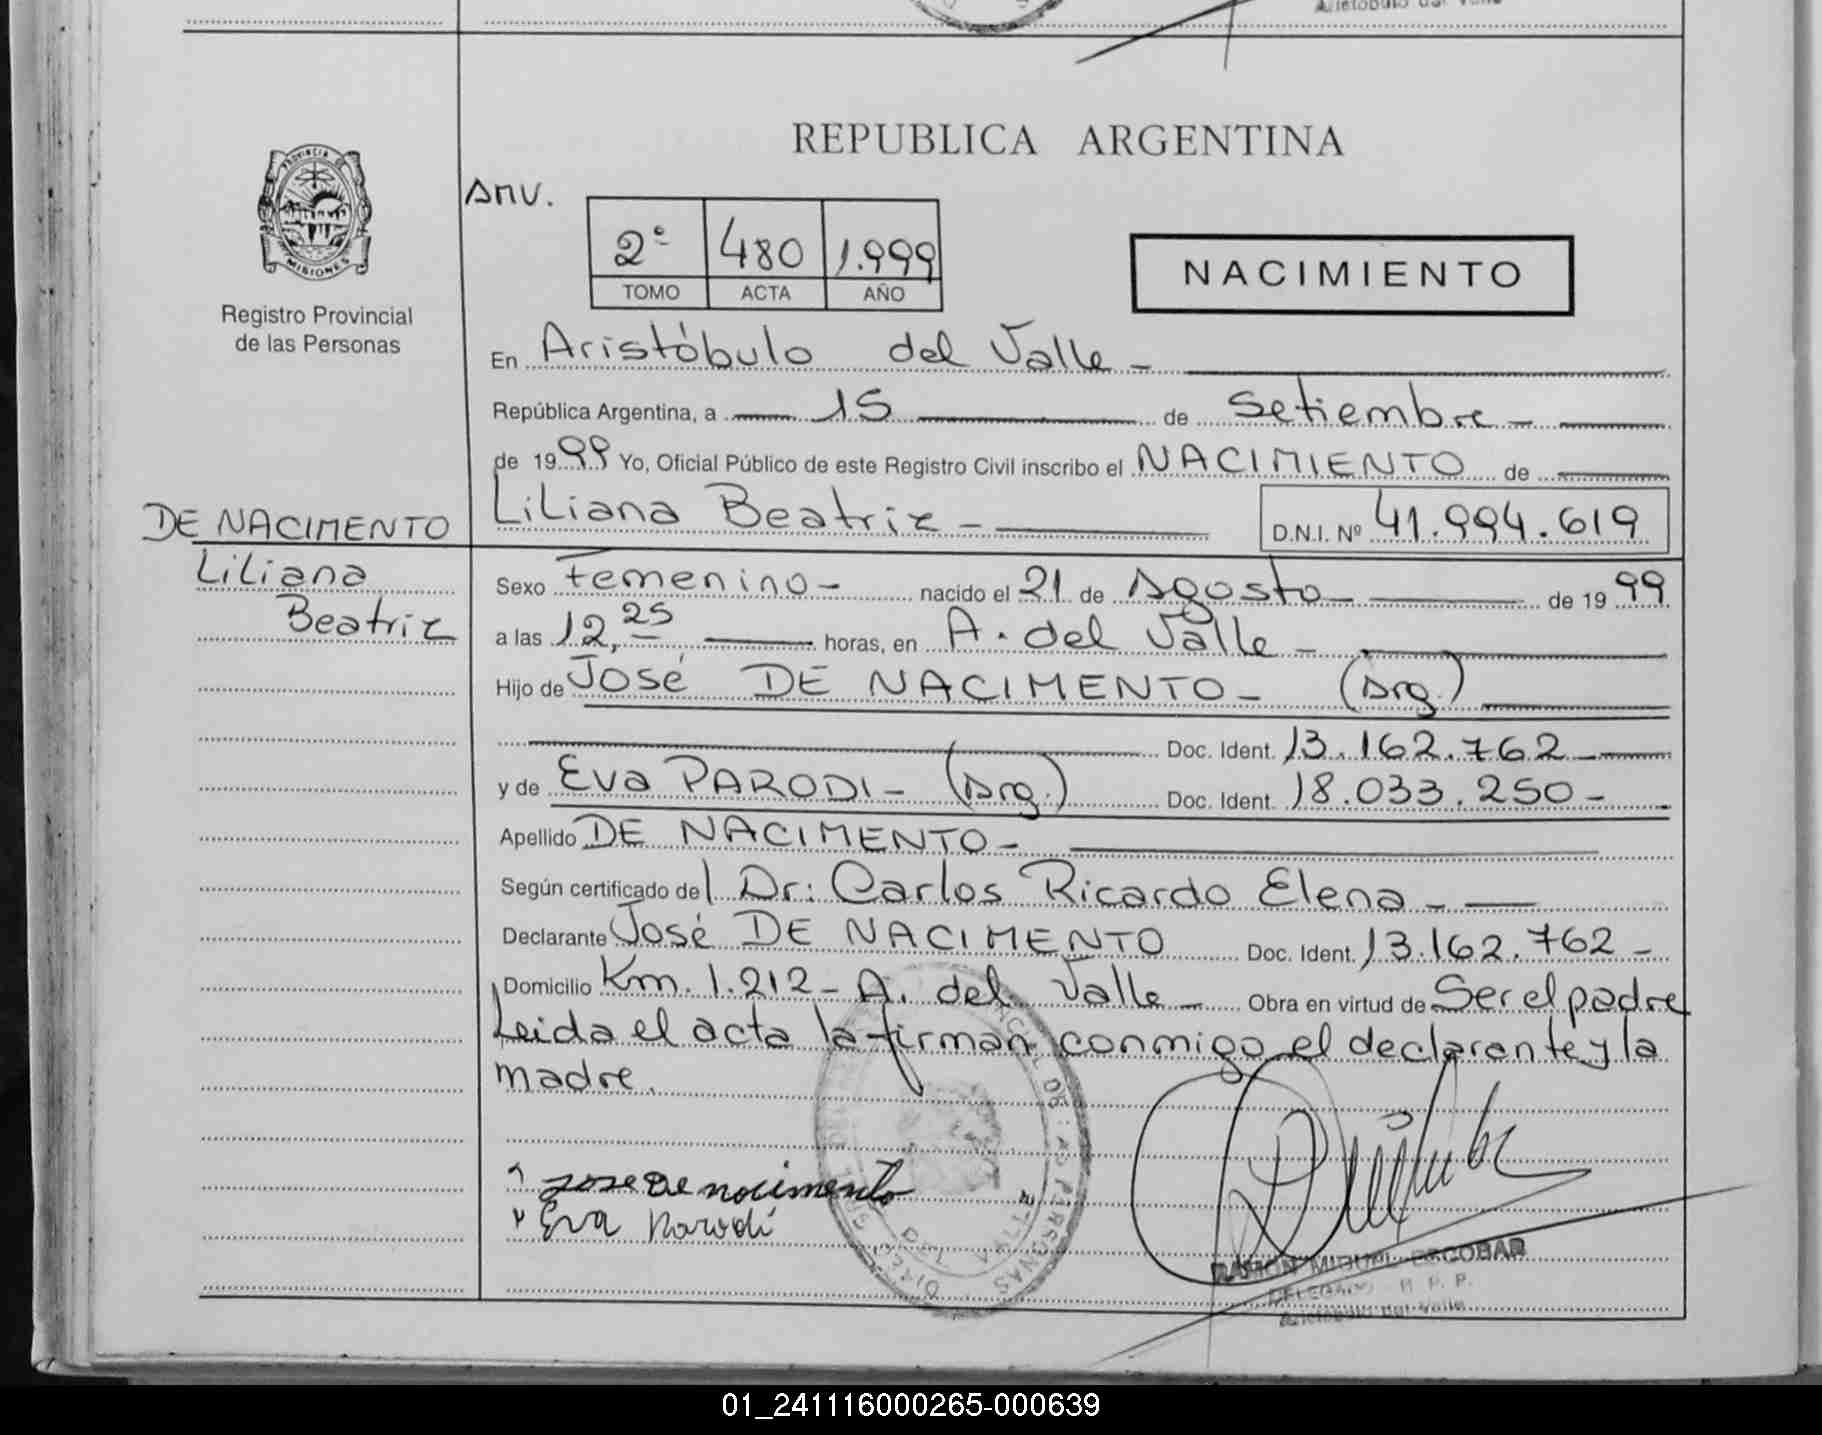 Aristobulo del Valle
REPUBLICA ARGENTINA
PROVINCIA DE
MISIONES
Registro Provincial
de las Personas
AMV.
2º 480 1.999
TOMO ACTA AÑO
NACIMIENTO
En Aristóbulo del Valle -
República Argentina, a 15 de Setiembre -
de 1999 Yo, Oficial Público de este Registro Civil inscribo el NACIMIENTO de
Liliana Beatriz - D.N.I. Nº 41.994.619
DE NACIMENTO
Liliana
Beatriz
Sexo Femenino - nacido el 21 de Agosto - de 1999
a las 12,25 horas, en A. del Valle -
Hijo de José DE NACIMENTO - (Arg.)
Doc. Ident. 13.162.762 -
y de Eva PARODI - (Arg.) Doc. Ident. 18.033.250 -
Apellido DE NACIMENTO -
Según certificado del Dr: Carlos Ricardo Elena -
Declarante José DE NACIMENTO Doc. Ident. 13.162.762 -
Domicilio Km. 1.212 - A. del Valle - Obra en virtud de Ser el padre
Leida el acta la firman conmigo el declarante y la
madre.
Jose De nacimento
Eva Parodi
RAMON MIGUEL ESCOBAR
DELEGADO R. P. P.
Aristobulo del Valle
01_241116000265-000639